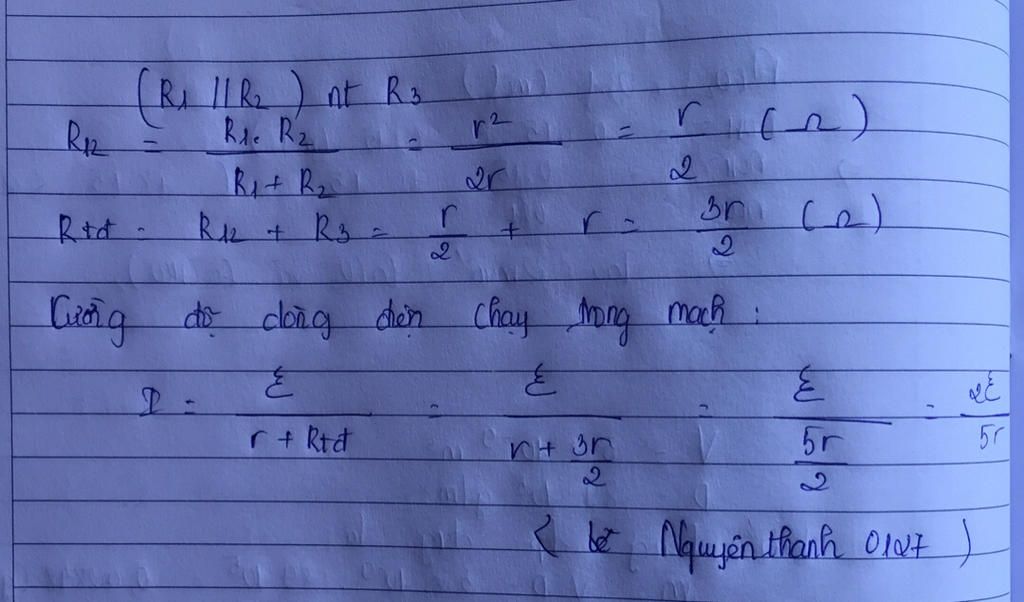 (R1 // R2) nt R3
R12 = R1. R2 / R1 + R2 = r² / 2r = r / 2 (Ω)
Rtđ = R12 + R3 = r / 2 + r = 3r / 2 (Ω)
Cường độ dòng điện chạy trong mạch :
I = ℰ / r + Rtđ = ℰ / r + 3r / 2 = ℰ / 5r / 2 = 2ℰ / 5r
Nguyên thanh 0127 )